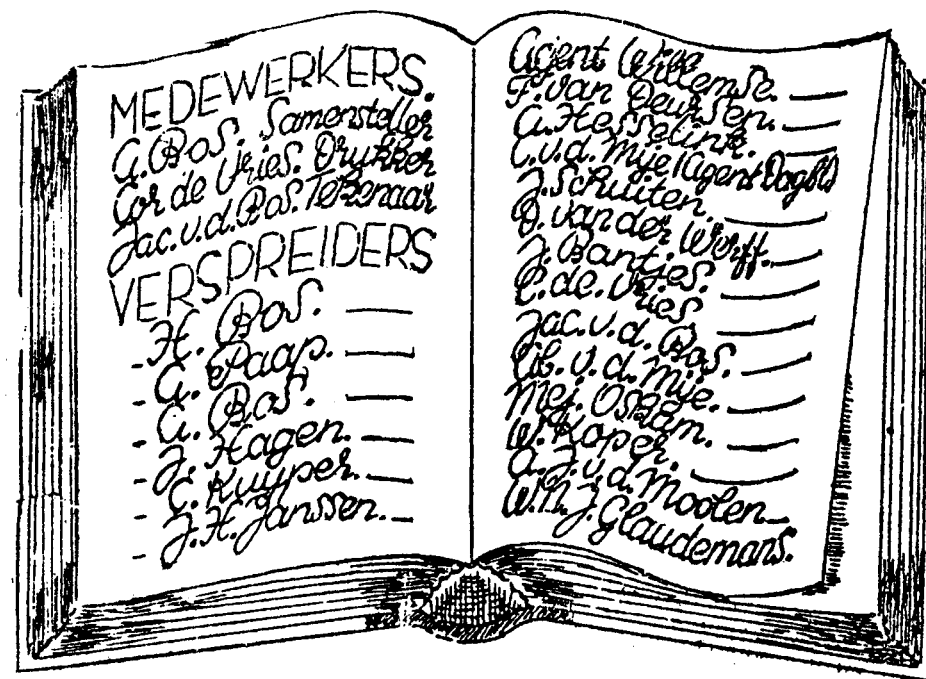 MEDEWERKERS.
G. Bos. Samensteller
Cor de Vries. Drukker
Jac. v. d. Bos. Tekenaar
VERSPREIDERS
- H. Bos. —
- G. Paap. —
- G. Bos. —
- J. Hagen. —
- C. Kuyper. —
- J. H. Janssen. —
Agent
Willemse. —
F. van Deursen. —
G. Hesselink. —
C. v. d. Mije (Agent Dagbl)
J. Schuiten. —
D. van der Werff. —
J. Bantjes. —
C. de Vries —
Jac. v. d. Bos. —
Lib. v. d. Mije. —
Mej. Oskam. —
W. Koper. —
A. J. v. d. Moolen —
W. N. J. Glaudemans.